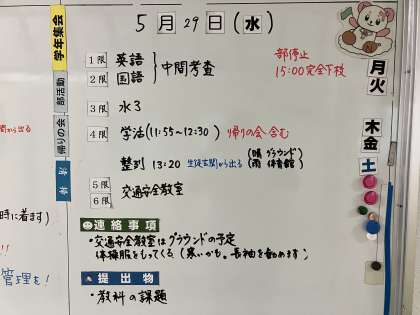 学年集会
部活動
帰りの会
5月29日(水)
1限 英語
2限 国語
中間考査
部停止
15:00完全下校
3限 水3
4限 学活(11:55〜12:30) 帰りの会含む
整列 13:20 生徒玄関から出る (晴 グラウンド
雨 体育館)
5限
6限
交通安全教室
連絡事項
・交通安全教室はグラウンドの予定
体操服をもってくる(寒いかも。長袖を勧めます)
提出物
・教科の課題
月
火
木
金
土
から出る
時に着ます)
管理を!